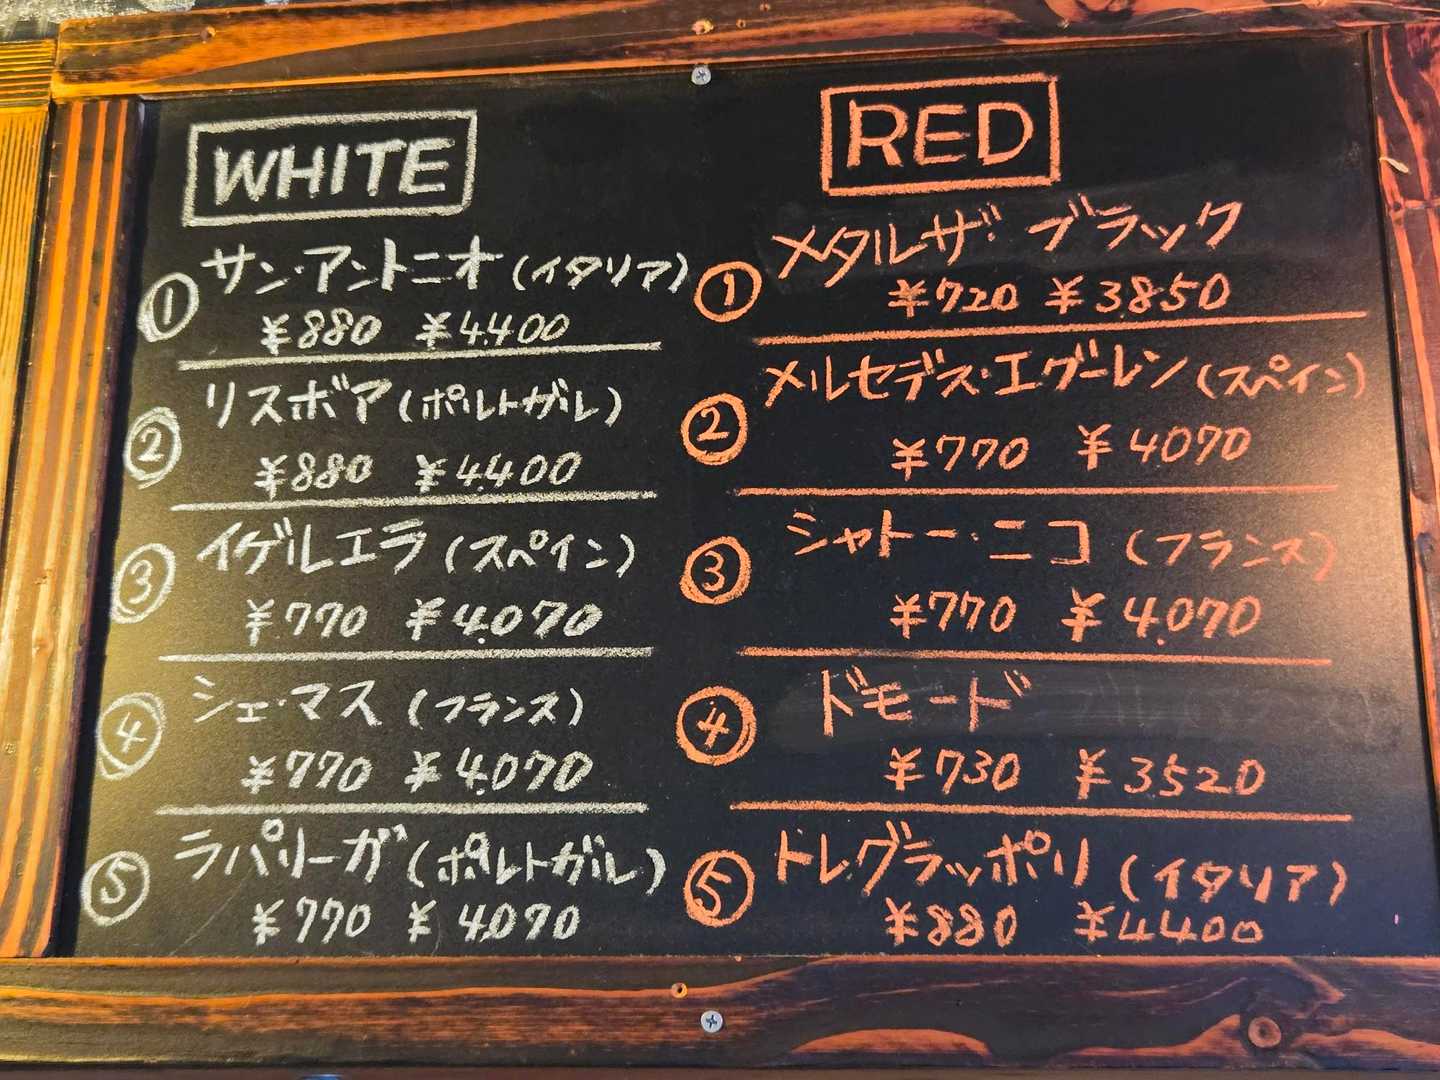 WHITE
① サン・アントニオ (イタリア)
¥880 ¥4.400
② リスボア (ポルトガル)
¥880 ¥4.400
③ イゲルエラ (スペイン)
¥770 ¥4.070
④ シェ・マス (フランス)
¥770 ¥4.070
⑤ ラパリーガ (ポルトガル)
¥770 ¥4.070
RED
① メタルザ・ブラック
¥720 ¥3.850
② メルセデス・エグーレン (スペイン)
¥770 ¥4070
③ シャトー・ニコ (フランス)
¥770 ¥4.070
④ ドモード
¥730 ¥3520
⑤ トレ.グラッポリ (イタリア)
¥880 ¥4400